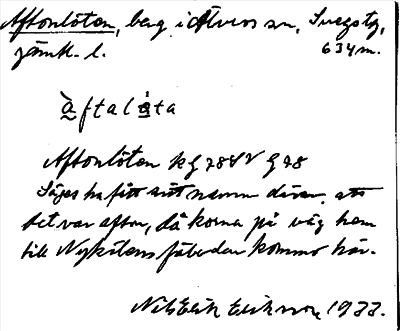 Aftonlöten, berg i Älvros sn, Svegs tg,
jämtl. l. 634 m.
àftalǻta
Aftonlöten kg 78 S V g 78
Säges ha fått sitt namn därav, att
det var afton, då korna på väg hem
till Nykölens fäbodar kommo här.
Nils Erik Eriksson, 1933.